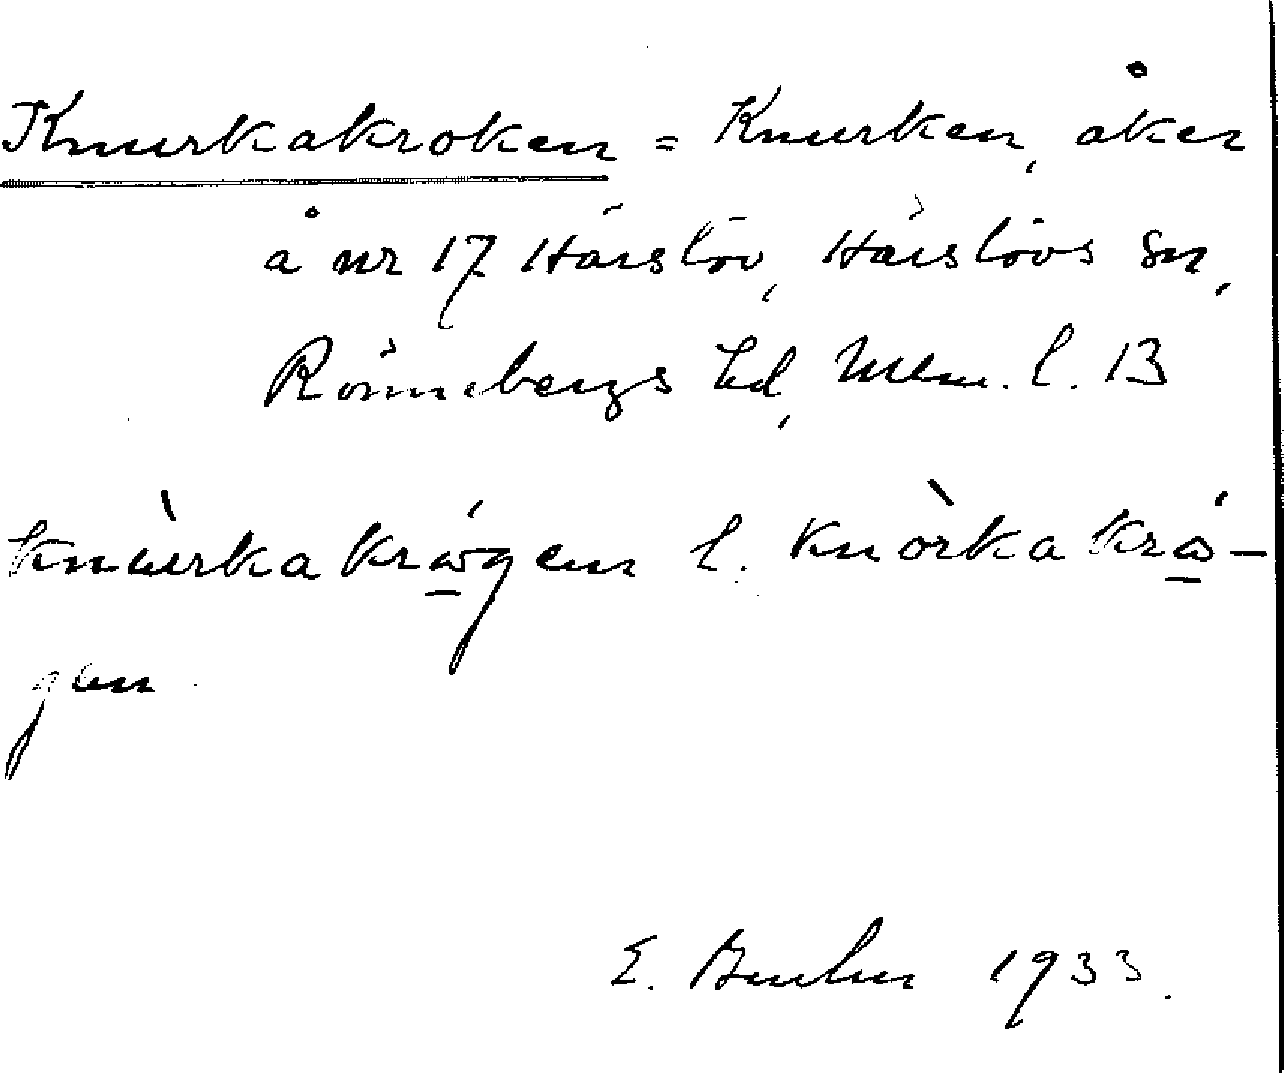 Knurkakroken = Knurken, åker
å nr 17 Härslöv, Härslövs sn,
Rönnebergs hd, Mlm. l. 13
knùrkakrógen l. knòrkakró-
gen
E. 1933.